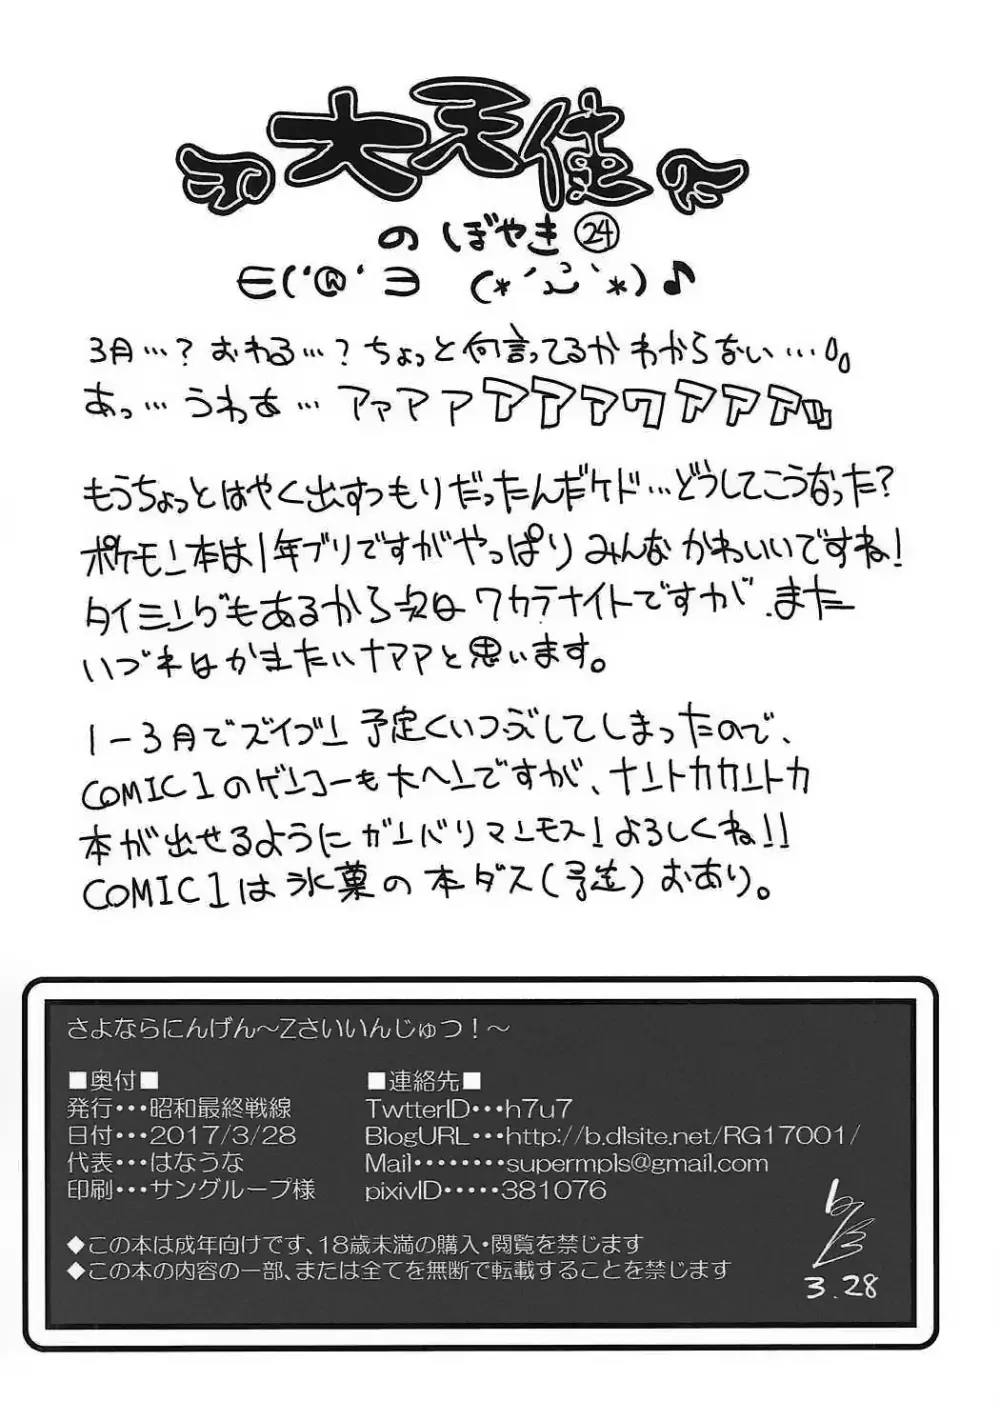 大天使
の ぼやき ㉔
∈('@' ∋ (*´ω`*)♪
3月…?おわる…?ちょっと何言ってるかわからない…
あっ…うわあ…アァアァアアアワアアアッ
もうちょっとはやく出すつもりだったんだケド…どうしてこうなった?
ポケモン本は1年ブリですがやっぱりみんなかわいいですね!
タイミングもあるから次はワカラナイトですが、また
いづれはかきたいナァァと思います。
1-3月でズイブン予定くいつぶしてしまったので、
COMIC1のゲンコーも大ヘンですが、ナントカカントカ
本が出せるようにガンバリマンモス!よろしくね!!
COMIC1は氷菓の本ダス(予定)おあり。
さよならにんげん~Zさいいんじゅつ!~
■奥付■
発行・・・昭和最終戦線
日付・・・2017/3/28
代表・・・はなうな
印刷・・・サングループ様
■連絡先■
TwtterID・・・h7u7
BlogURL・・・http://b.dlsite.net/RG17001/
Mail・・・・・・・・supermpls@gmail.com
pixivID・・・・・381076
◆この本は成年向けです、18歳未満の購入・閲覧を禁じます
◆この本の内容の一部、または全てを無断で転載することを禁じます
3.28